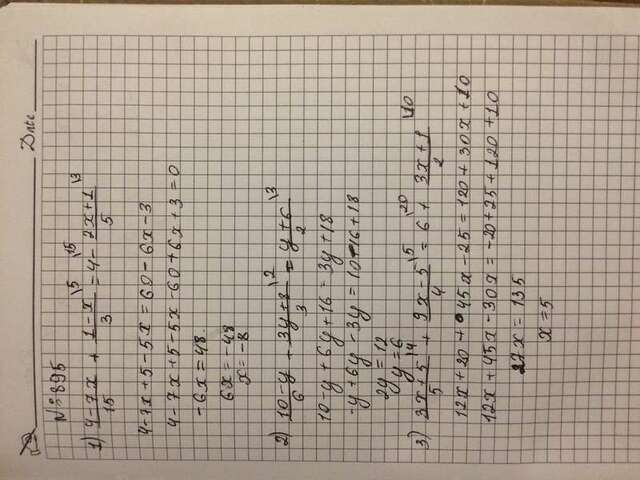 Date
№ 895
1) (4-7x)/15 + (1-x)/3 \5 = 4 \15 - (2x+1)/5 \3
4-7x+5-5x=60-6x-3
4-7x+5-5x-60+6x+3=0
-6x=48
6x=-48
x=-8
2) (10-y)/6 + (3y+8)/3 \2 = (y+6)/2 \3
10-y+6y+16=3y+18
-y+6y-3y=10-16+18
2y=12
y=6
3) (3x+5)/5 \4 + (9x-5)/4 \5 = 6 \20 + (3x+1)/2 \10
12x+20+45x-25=120+30x+10
12x+45x-30x=-20+25+120+10
27x=135
x=5